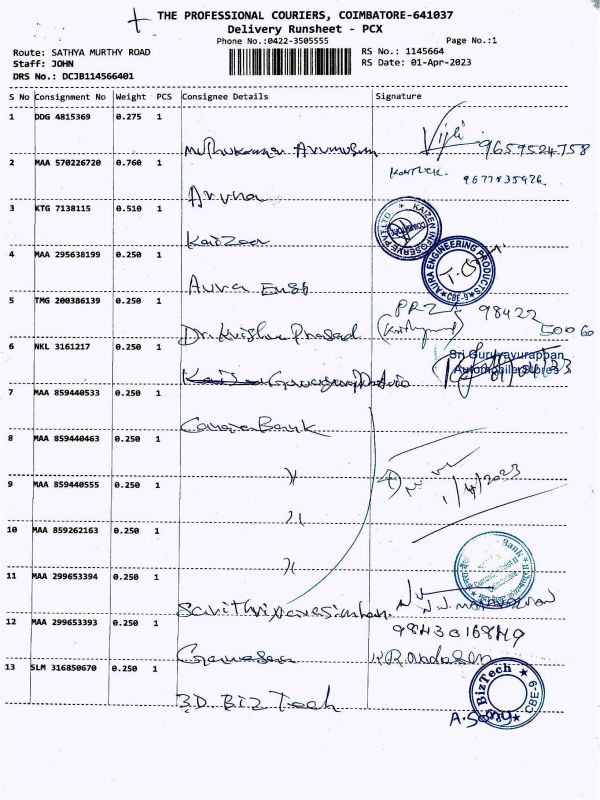 THE PROFESSIONAL COURIERS, COIMBATORE-641037
Delivery Runsheet - PCX
Phone No.:0422-3505555 Page No.:1
Route: SATHYA MURTHY ROAD RS No.: 1145664
Staff: JOHN RS Date: 01-Apr-2023
DRS No.: DCJB114566401
S No Consignment No Weight PCS Consignee Details Signature
1 DDG 4815369 0.275 1
Arumugam Vijli 9659524758
2 MAA 570226720 0.760 1
Aruna
3 KTG 7138115 0.510 1
Kaizen KAIZEN INFOSERVE PVT LTD
4 MAA 295638199 0.250 1
Aura Engg AURA ENGINEERING PRODUCTS CBE-9
5 TMG 200386139 0.250 1
Dr. Krishna Prasad 98422 50060
6 NKL 3161217 0.250 1
Sri Guruvayurappan
Automobile Stores
7 MAA 859440533 0.250 1
Canara Bank
8 MAA 859440463 0.250 1
9 MAA 859440555 0.250 1
1/4/2023
10 MAA 859262163 0.250 1
Bank
11 MAA 299653394 0.250 1
98430 16849
12 MAA 299653393 0.250 1
13 SLM 316850670 0.250 1
3D BIZ Tech BizTech CBE-6